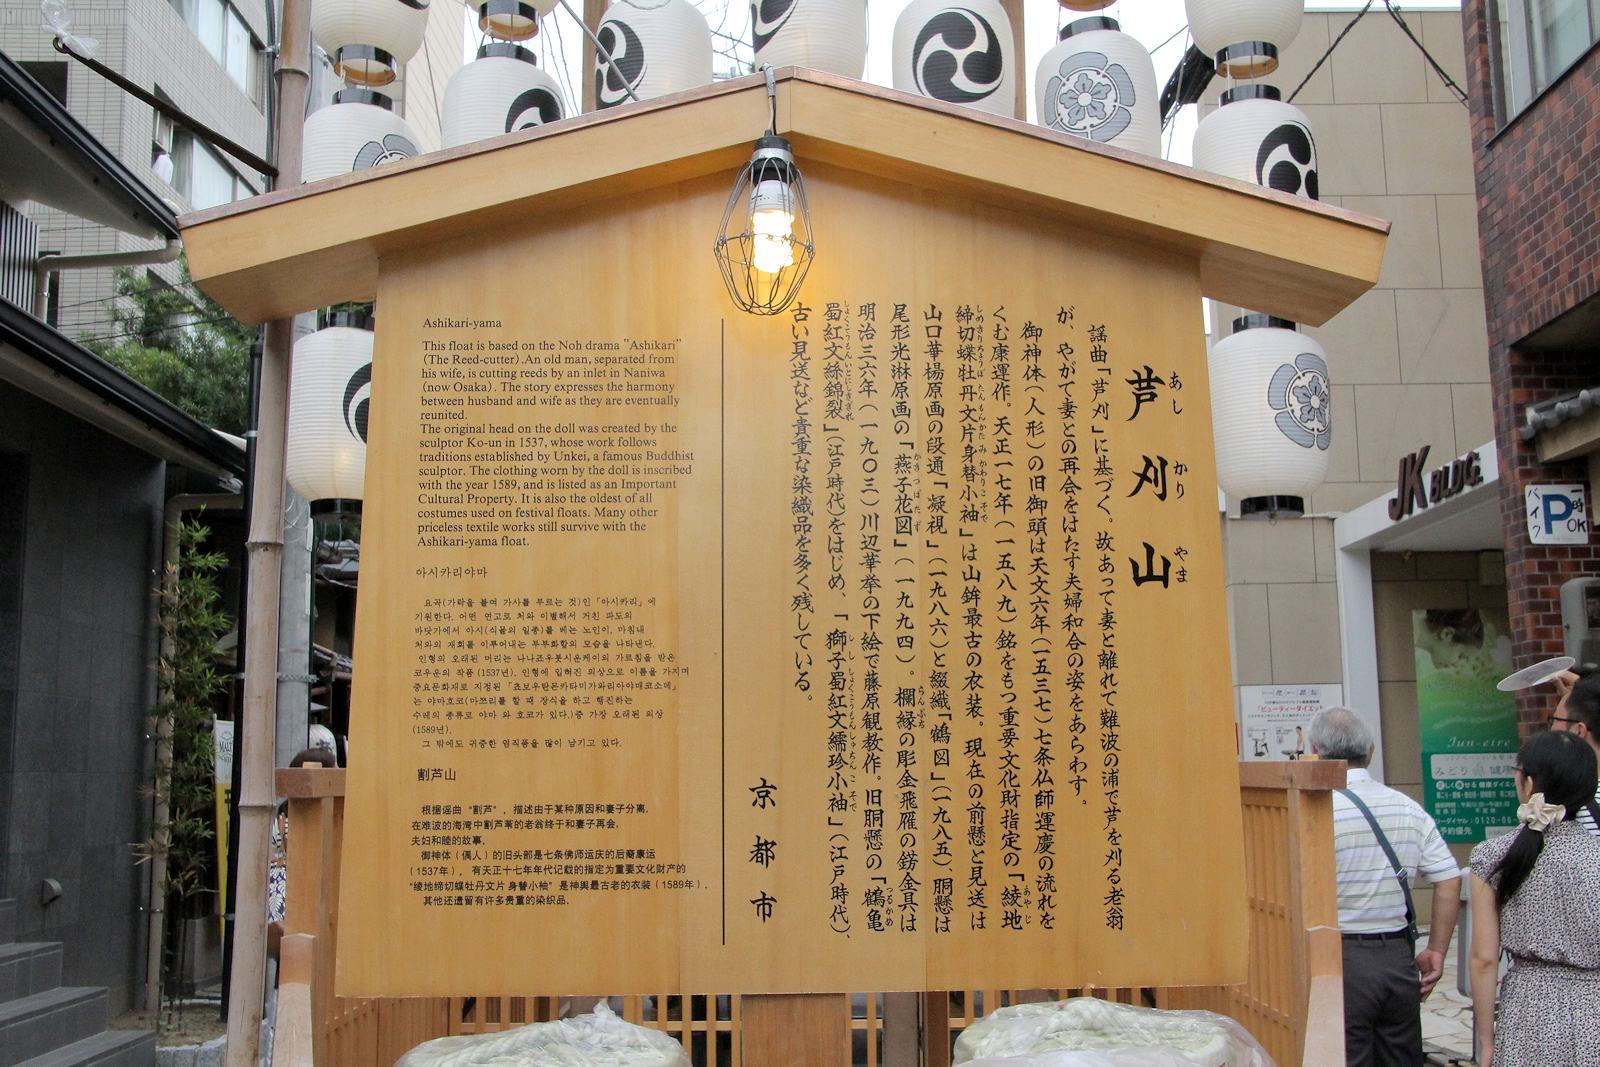 Ashikari-yama
This float is based on the Noh drama "Ashikari"
(The Reed-cutter).An old man, separated from
his wife, is cutting reeds by an inlet in Naniwa
(now Osaka). The story expresses the harmony
between husband and wife as they are eventually
reunited.
The original head on the doll was created by the
sculptor Ko-un in 1537, whose work follows
traditions established by Unkei, a famous Buddhist
sculptor. The clothing worn by the doll is inscribed
with the year 1589, and is listed as an Important
Cultural Property. It is also the oldest of all
costumes used on festival floats. Many other
priceless textile works still survive with the
Ashikari-yama float.
아시카리야마
요곡(가락을 붙여 가사를 부르는 것)인「아시카리」에
기원한다. 어떤 연고로 처와 이별해서 거친 파도의
바닷가에서 아시(식물의 일종)를 베는 노인이, 마침내
처와의 재회를 이루어내는 부부화합의 모습을 나타낸다.
인형의 오래된 머리는 나나죠우붓시운케이의 가르침을 받은
코우운의 작품 (1537년). 인형에 입혀진 의상으로 이름을 가지며
중요문화재로 지정된 「쵸보우탄몬카타미가와리아야매코소데」
는 야마호코(마쯔리를 할 때 장식을 하고 행진하는
수레의 종류로 야마 와 호코가 있다.)중 가장 오래된 의상
(1589년).
그 밖에도 귀중한 염직품을 많이 남기고 있다.
割芦山
根据谣曲“割芦”，描述由于某种原因和妻子分离，
在难波的海湾中割芦苇的老翁终于和妻子再会，
夫妇和睦的故事。
御神体（偶人）的旧头部是七条佛师运庆的后裔康运
（1537年）， 有天正十七年年代记载的指定为重要文化财产的
“绫地缔切蝶牡丹文片身替小袖”是神舆最古老的衣装（1589年）.
其他还遗留有许多贵重的染织品。
芦刈山
あし かり やま
謡曲「芦刈」に基づく。故あって妻と離れて難波の浦で芦を刈る老翁
が、やがて妻との再会をはたす夫婦和合の姿をあらわす。
御神体（人形）の旧御頭は天文六年（一五三七）七条仏師運慶の流れを
くむ康運作。天正一七年（一五八九）銘をもつ重要文化財指定の「綾地
締切蝶牡丹文片身替小袖」は山鉾最古の衣装。現在の前懸と見送は
山口華楊原画の段通「凝視」（一九八六）と綴織「鶴図」（一九八五）、胴懸は
尾形光淋原画の「燕子花図」（一九九四）。欄縁の彫金飛雁の錺金具は
明治三六年（一九〇三）川辺華挙の下絵で藤原観教作。旧胴懸の「鶴亀
蜀紅文絲錦裂」（江戸時代）をはじめ、「獅子蜀紅文繻珍小袖」（江戸時代）、
古い見送など貴重な染織品を多く残している。
京都市
JK BLDG.
一時
P OK
バイク
「ビューティーダイエット
Jun-eire
みどり
予約優先